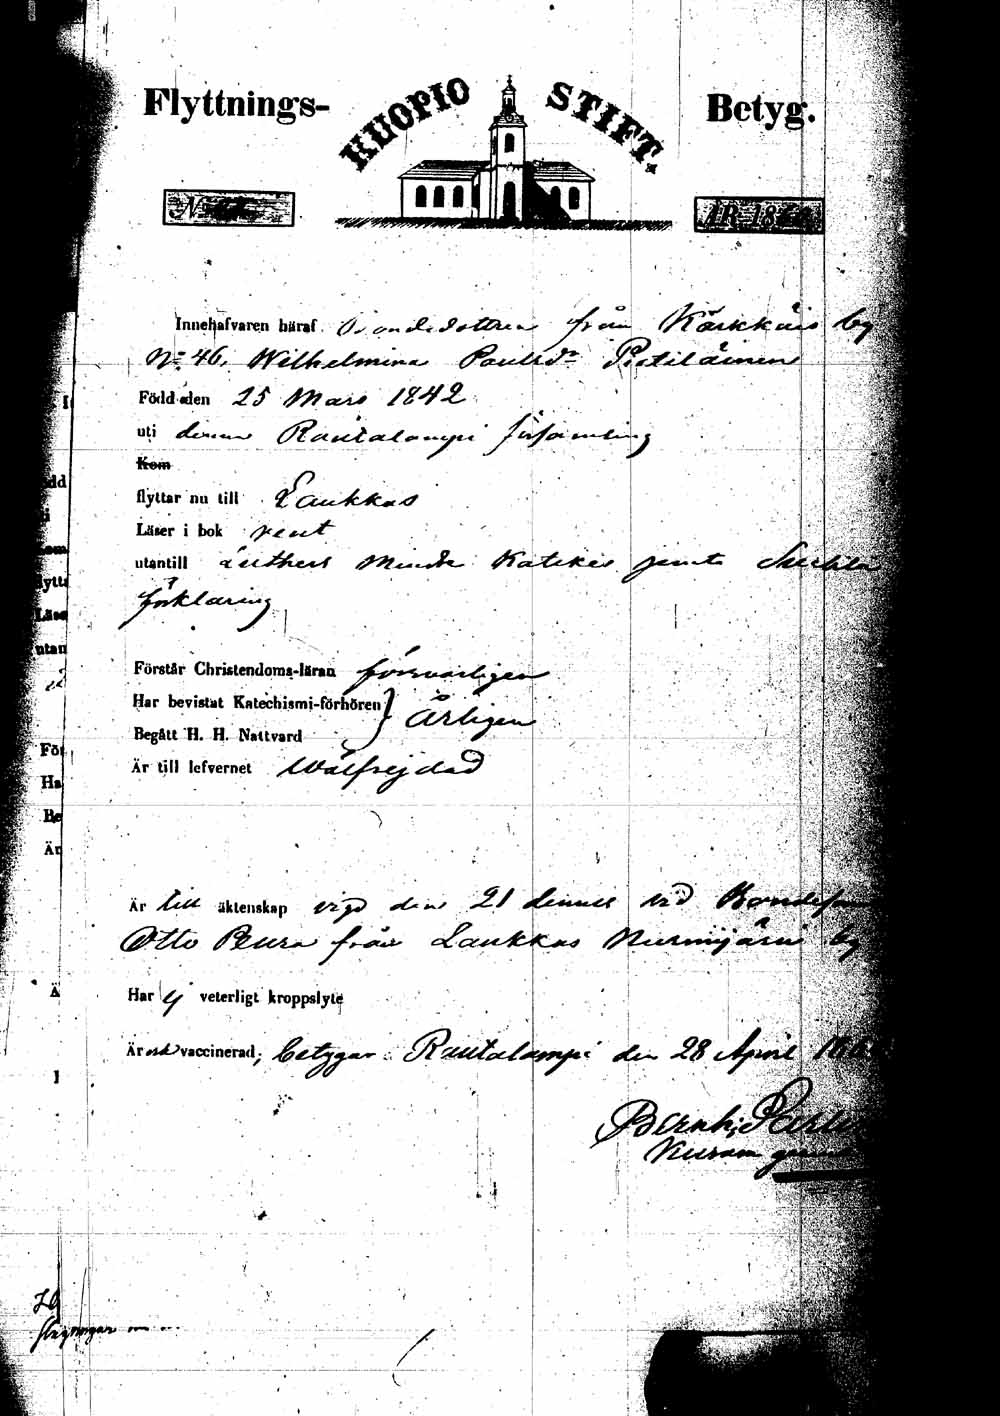 Flyttnings- KUOPIO STIFT. Betyg.
N
ÅR 186
Innehafvaren häraf Bondedottren från Kärkkäis by
No 46, Wilhelmina Paulsdr Pietiläinen
Född den 25 Mars 1842
uti denna Rautalampi församling
Kom
flyttar nu till Laukkas
Läser i bok rent
utantill Luthers Mindre Katekes jemte
förklaring
Förstår Christendoms-läran försvarligen
Har bevistat Katechismi-förhören } Årligen
Begått H. H. Nattvard
Är till lefvernet Wälfrejdad
Är till äktenskap vigd den 21 dennes vid
Otto Peura från Laukkas Nurmijärvi by
Har ej veterligt kroppslyte
Är och vaccinerad; betygar. Rautalampi den 28 April 186
Bernh: